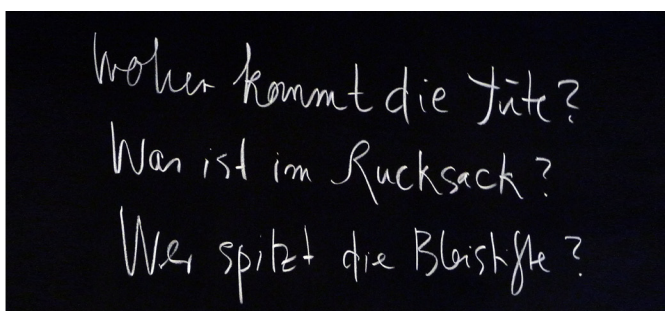 Woher kommt die Tüte?
Was ist im Rucksack?
Wer spitzt die Bleistifte?